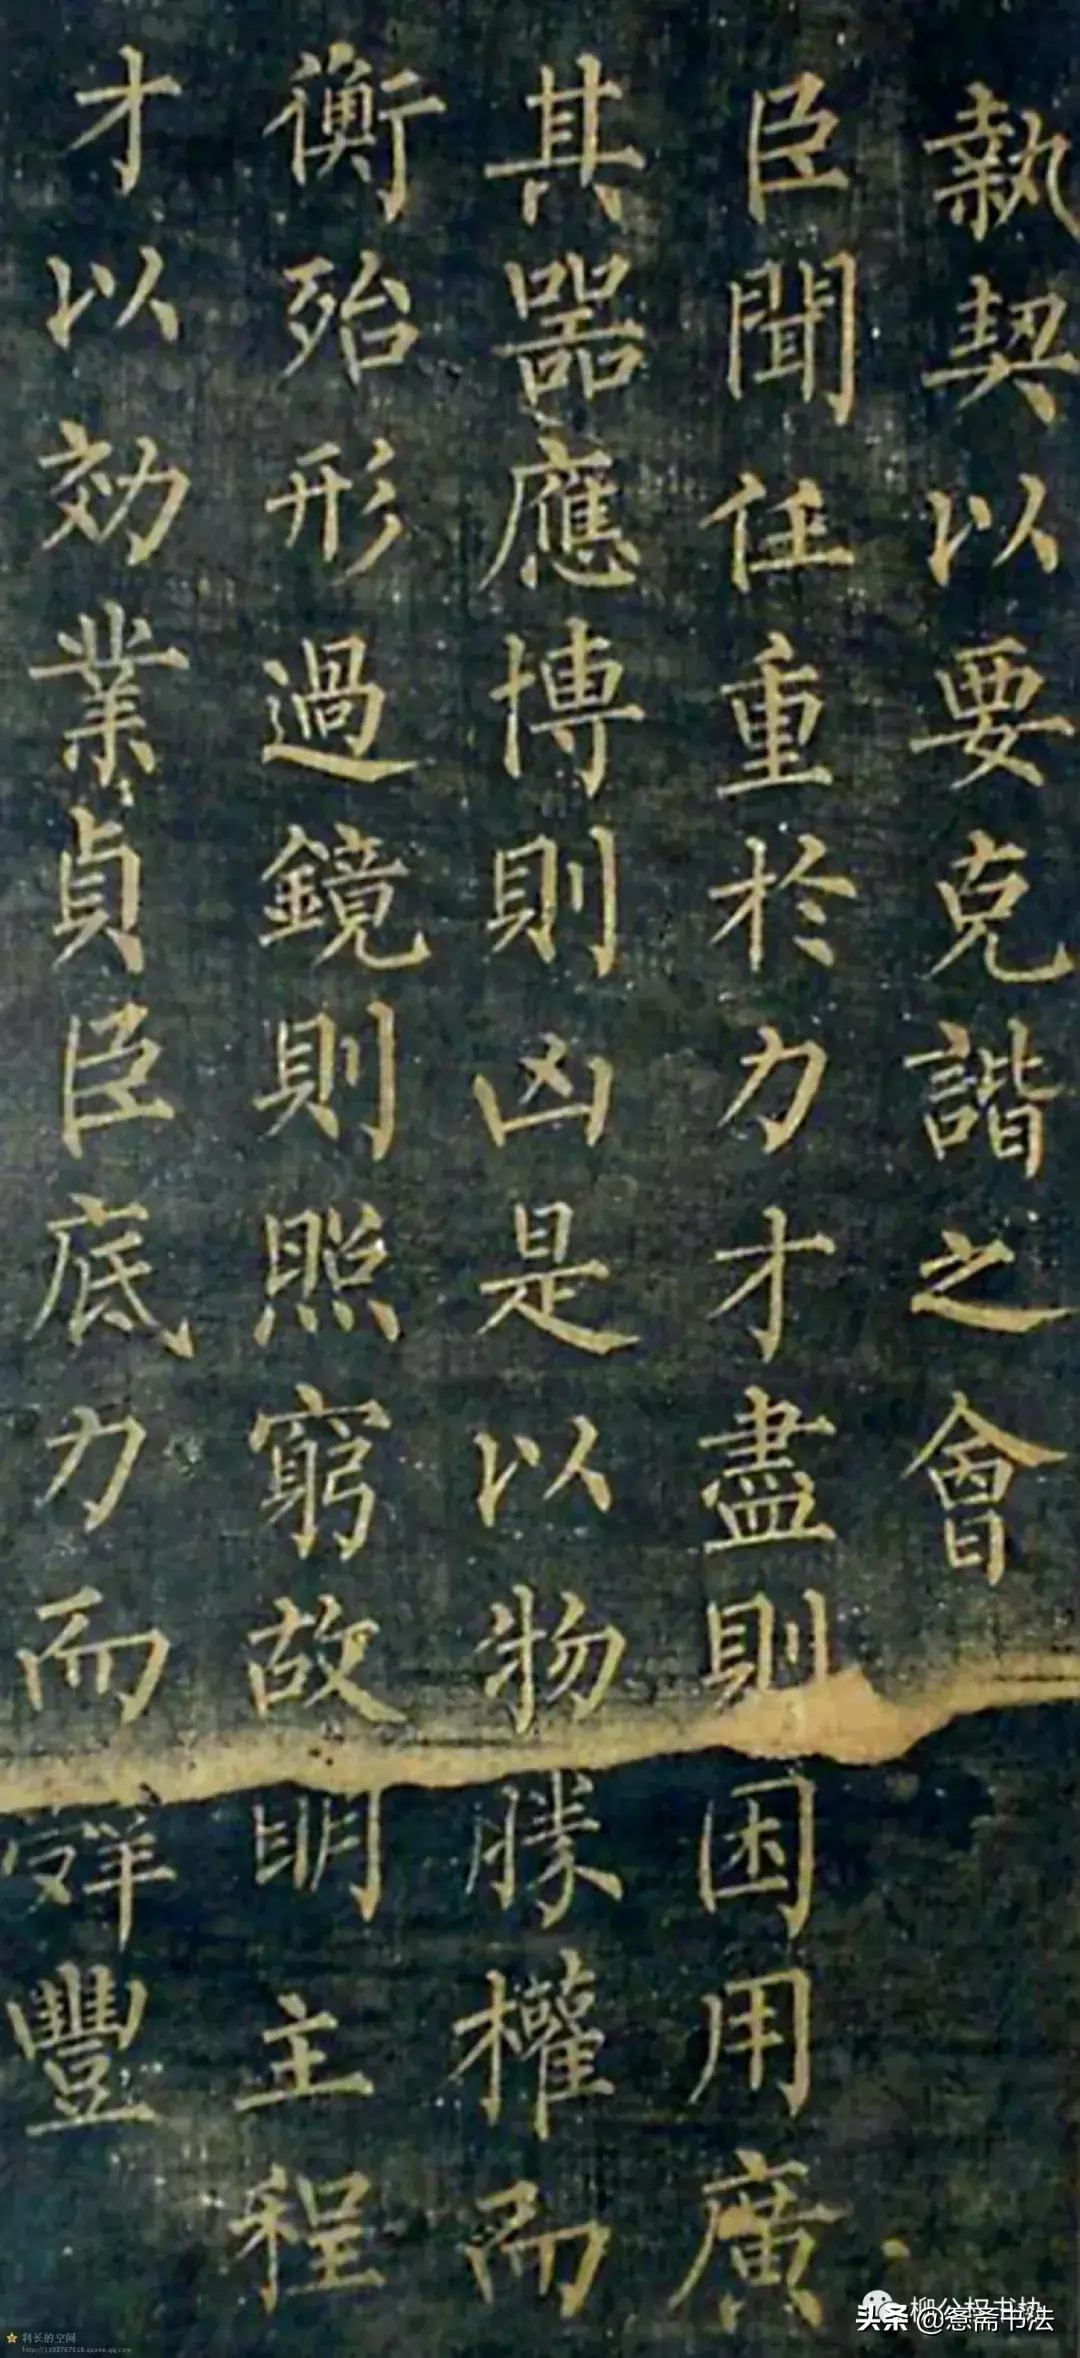 執契以要克諧之會
臣聞任重於力才盡則困用廣
其器應博則凶是以物勝權而
衡殆形過鏡則照窮故明主程
才以効業貞臣底力而辤豐
头条 斋书法
利长的空间